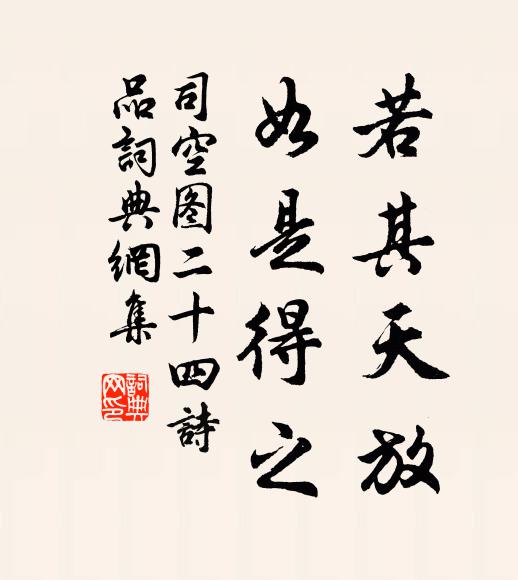 若其天放
如是得之
司空图二十四詩
品詞典網集
詞典
网印